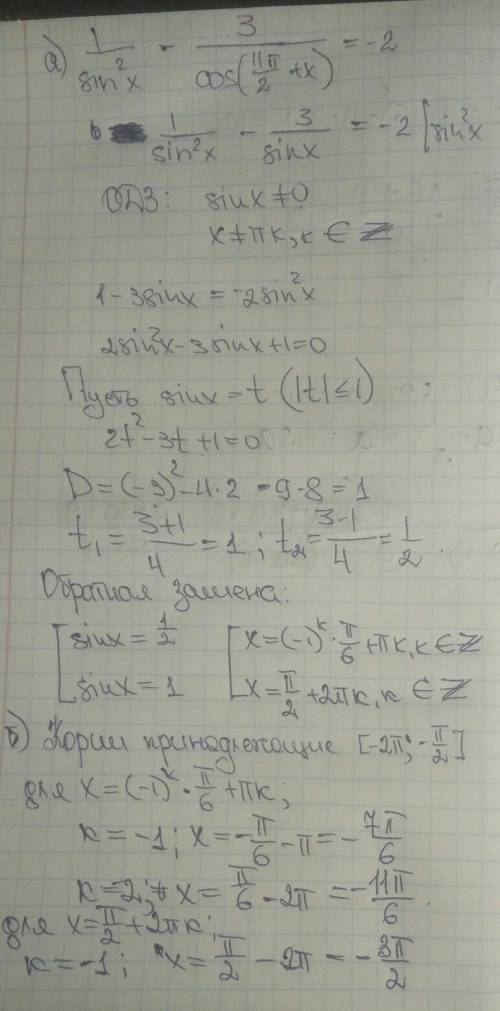 а) 1/sin²x - 3/cos(11π/2 + x) = -2
1/sin²x - 3/sinx = -2 | sin²x
ОДЗ: sinx ≠ 0
x ≠ πк, к ∈ Z
1 - 3sinx = -2sin²x
2sin²x - 3sinx + 1 = 0
Пусть sinx = t (|t| ≤ 1)
2t² - 3t + 1 = 0
D = (-3)² - 4·2 = 9 - 8 = 1
t₁ = (3+1)/4 = 1; t₂ = (3-1)/4 = 1/2.
Обратная замена:
[ sinx = 1/2 [ x = (-1)ᵏ · π/6 + πк, к ∈ Z
[ sinx = 1 [ x = π/2 + 2πк, к ∈ Z
б) Корни принадлежащие [-2π; -π/2]
для x = (-1)ᵏ · π/6 + πк;
к = -1; x = -π/6 - π = -7π/6
к = 2; x = π/6 - 2π = -11π/6.
для x = π/2 + 2πк;
к = -1; x = π/2 - 2π = -3π/2